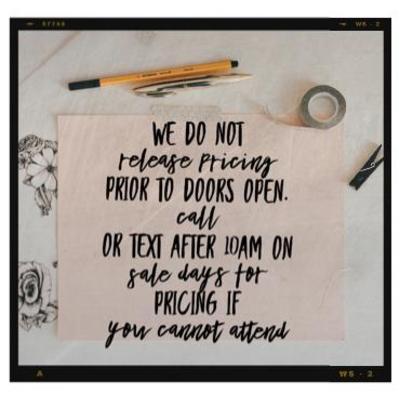 57760
W5 - 2
WE DO NOT
release pricing
PRIOR TO DOORS OPEN.
call
OR TEXT AFTER 10AM ON
sale days for
PRICING IF
you cannot attend
A
W5 - 2